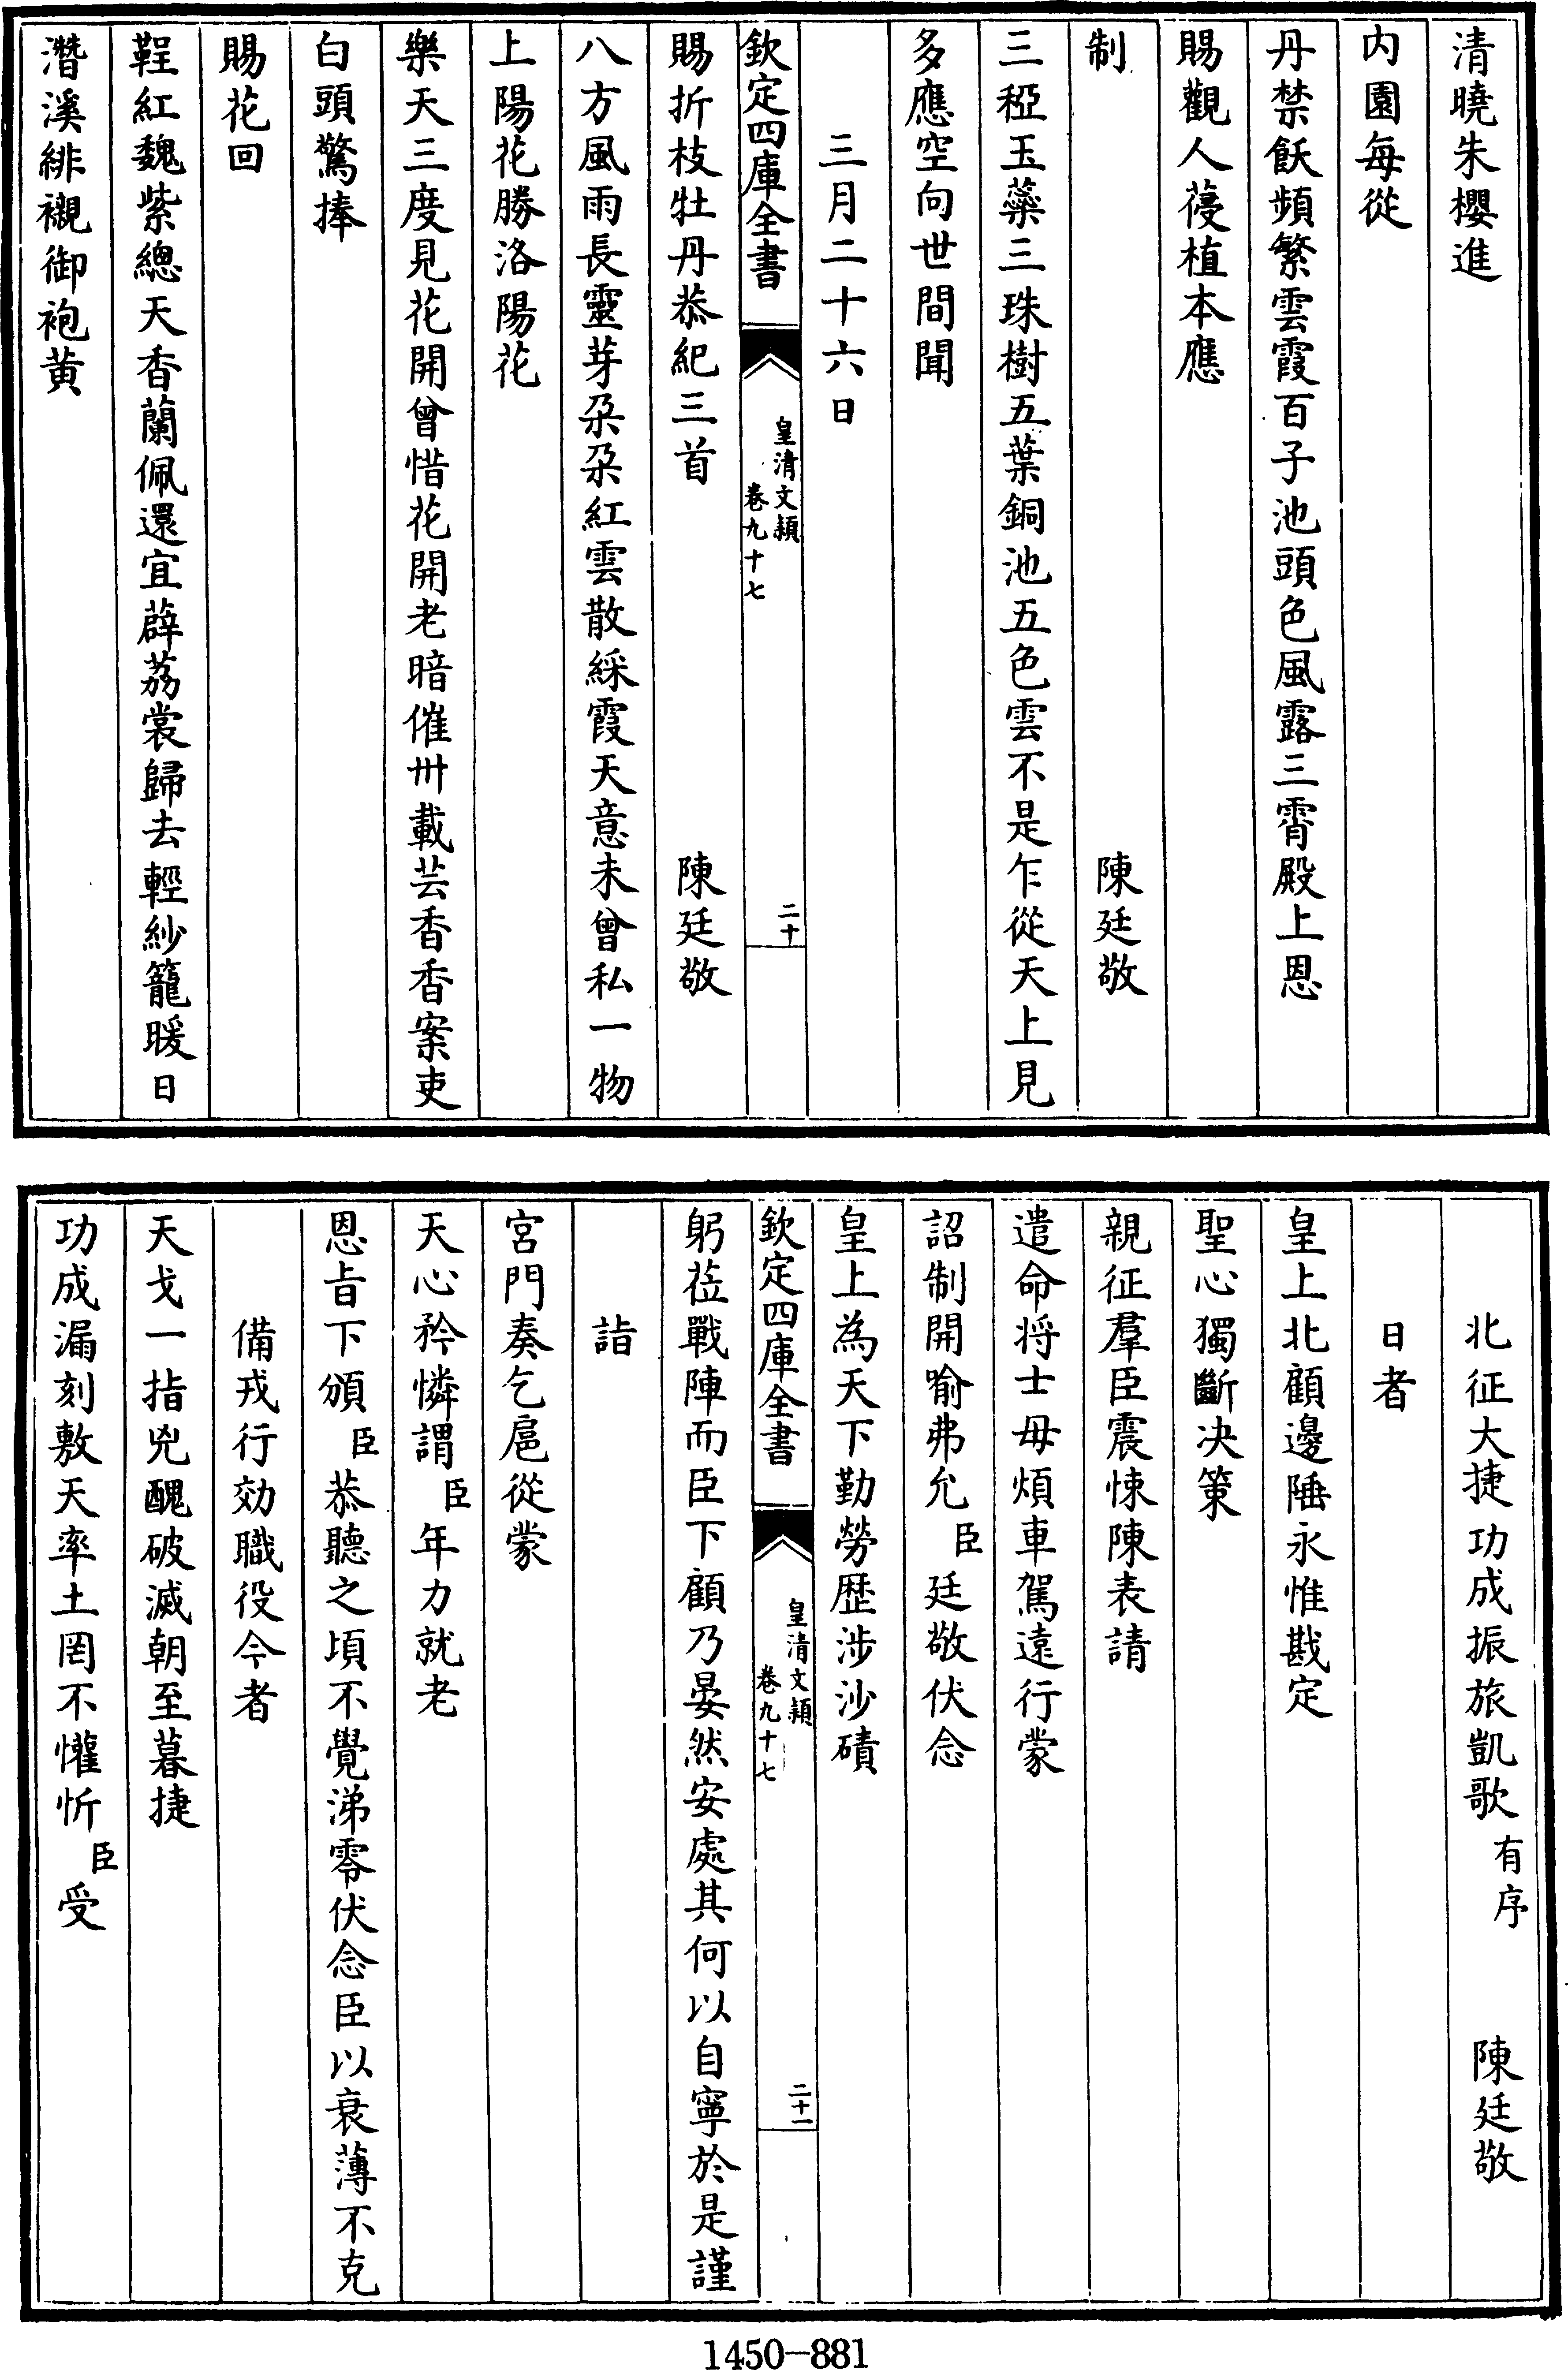 清曉朱櫻進
内園每從
丹禁飫頻繁雲霞百子池頭色風露三霄殿上恩
賜觀人葠植本應
制　陳廷敬
三椏玉蘂三珠樹五葉銅池五色雲不是乍從天上見
多應空向世間聞
三月二十六日
欽定四庫全書
皇清文穎
卷九十七
二十
賜折枝牡丹恭紀三首　陳廷敬
八方風雨長靈芽朶朶紅雲散綵霞天意未曾私一物
上陽花勝洛陽花
樂天三度見花開曾惜花開老暗催卅載芸香香案吏
白頭驚捧
賜花回
鞓紅魏紫總天香蘭佩還宜薜荔裳歸去輕紗籠暖日
濳溪緋襯御袍黄
北征大捷功成振旅凱歌有序　陳廷敬
日者
皇上北顧邊陲永惟戡定
聖心獨斷决策
親征羣臣震悚陳表請
遣命将士毋煩車駕遠行蒙
詔制開喻弗允臣廷敬伏念
皇上為天下勤勞歴涉沙磧
欽定四庫全書
皇清文穎
卷九十七
二十一
躬莅戰陣而臣下顧乃晏然安處其何以自寧於是謹
詣
宮門奏乞扈從蒙
天心矜憐謂臣年力就老
恩㫖下頒臣恭聽之頃不覺涕零伏念臣以衰薄不克
備戎行効職役今者
天戈一指兇醜破滅朝至暮捷
功成漏刻敷天率土罔不懽忻臣受
1450-881